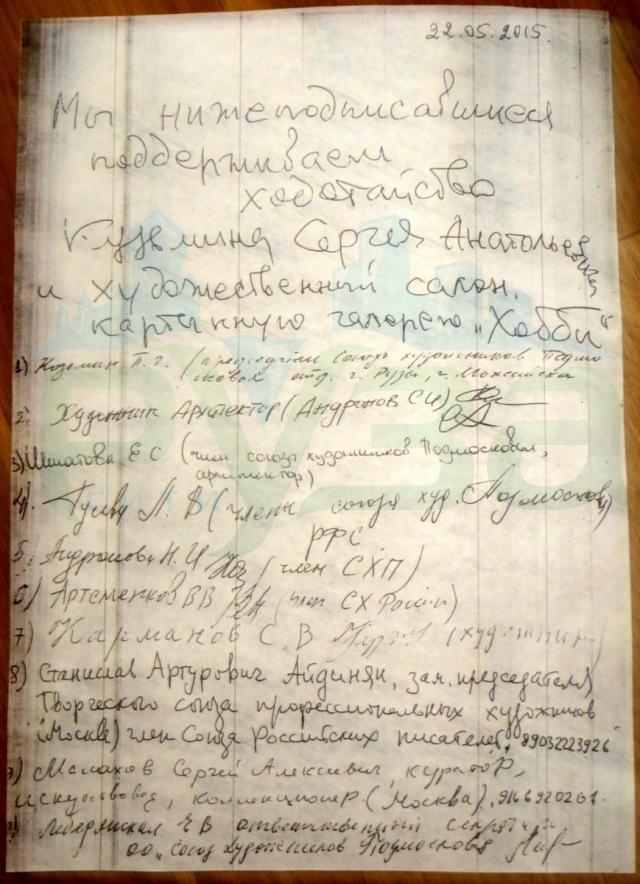 22.05.2015.
Мы нижеподписавшиеся
поддерживаем
ходотайство
Кузьмина Сергея Анатольевича
и художественный салон.
картинную галерею „Хобби"
1) Коземин П.Г. (председатель Союза художников Подмо
сковья отд. г. Рузы, г. Можайска
2. Художник Архитектор (Андронов СИ)
3) Шматова Е С (член союза художников Подмосковья,
архитектор)
4). Гусева Л. В (член союза худ. Подмосковья)
РФС
5. Андронова Н. И (член СХП)
6) Артеменков ВВ (член СХ России)
7) Карманов С. В (художник)
8) Станислав Артурович Айдинян, зам. председателя
Творческого союза профессиональных художников
(Москва) член Союза Российских писателей, 89032223926
9) Малахов Сергей Алексеевич, куратор,
искусствовед, коллекционер. (Москва).
Е В ответственный секретарь
оо „Союз Художников Подмосковья
Руза